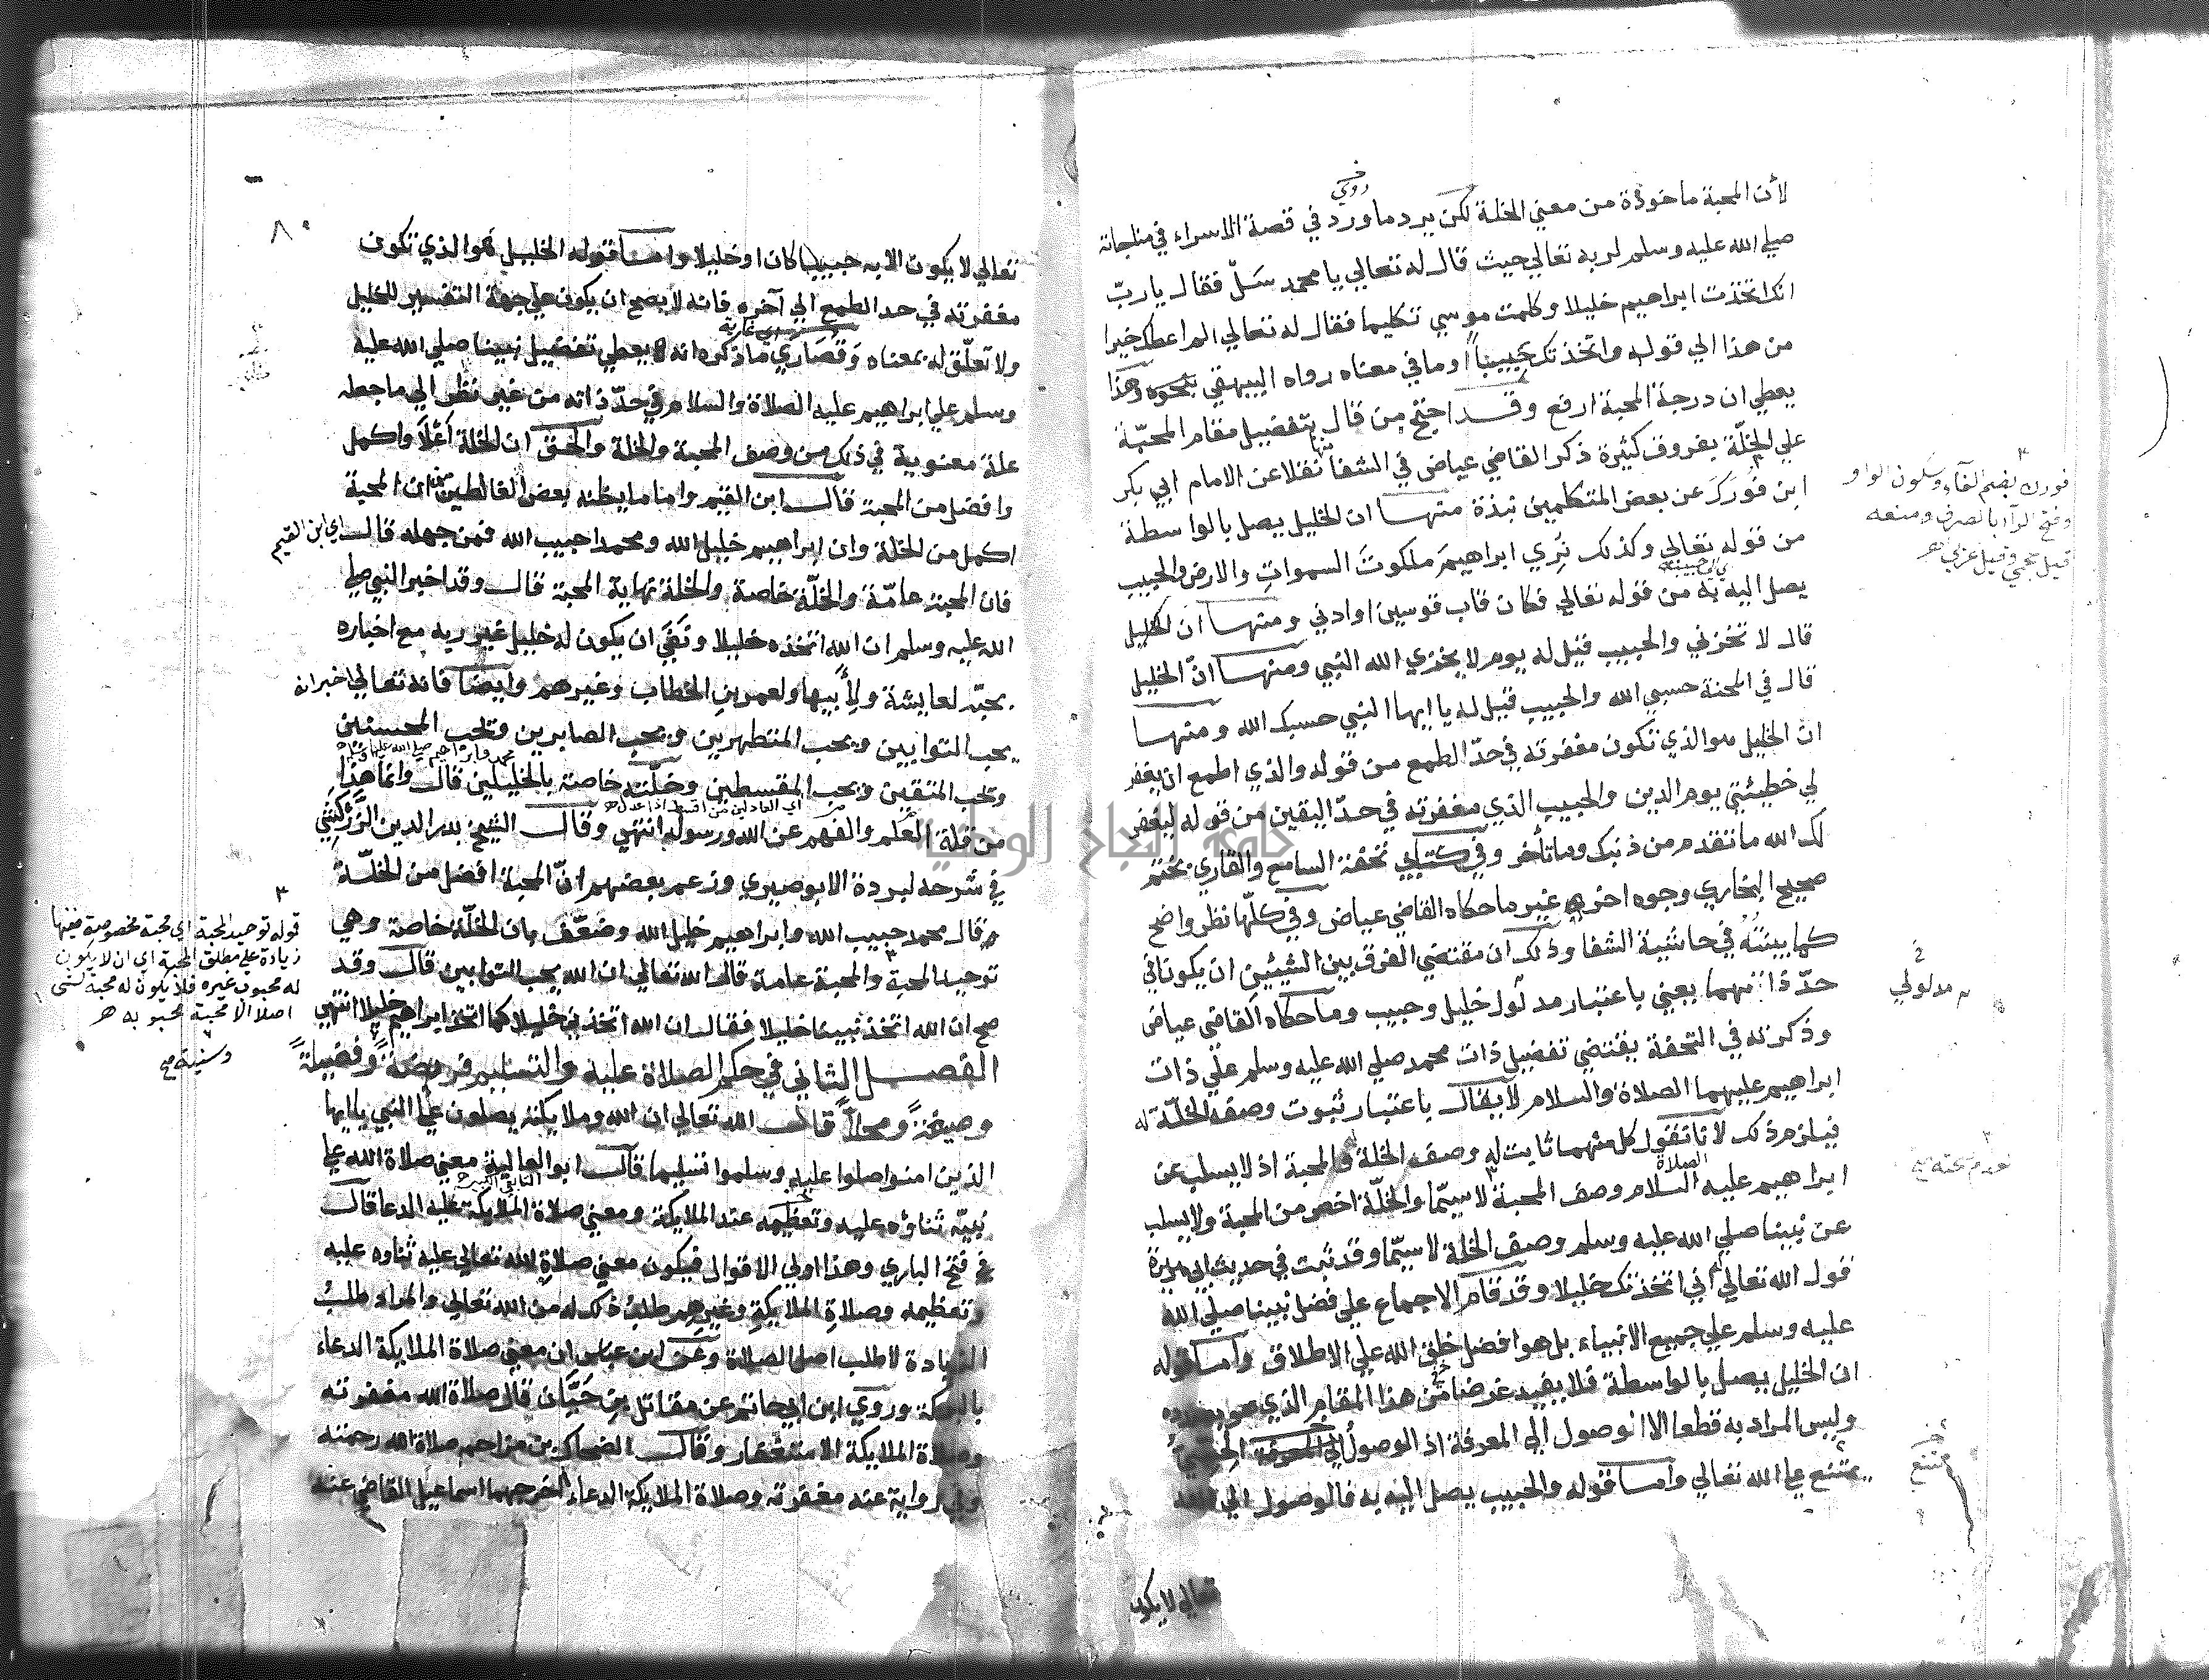 روي
لأن المحبة ماخوذة من معني الخلة لكن يرد ما ورد في قصة الاسراء في مناجاته
صلي الله عليه وسلم لربه تعالي حيث قال له تعالي يا محمد سَلْ فقال يا ربّ
انك اتخذت ابراهيم خليلا وكلمت موسي تكليما فقال له تعالي الم اعطك خيرا
من هذا الي قوله واتخذتك حبيباً او ما في معناه رواه البيهقي بنحوه وهذا
يعطي ان درجة المحبة ارفع وقد احتج من قال بتفضيل مقام المحبّة
علي الخلّة بفروق كثيرة ذكر القاضي عياض في الشفا منها نقلا عن الامام ابي بكر
ابن فُورَكَ عن بعض المتكلمين نبذة منها ان الخليل يصل بالواسطة
من قوله تعالي وكذلك نُري ابراهيمَ ملكوتَ السمواتِ والارض والحبيب
يصل اليه به من قوله تعالي فكان قاب قوسين او ادني ومنها ان الخليل
قال لا تخزني والحبيب قيل له يوم لا يخزي الله النبي ومنها انّ الخليل
قال في المحنة حسبي الله والحبيب قيل له يا ايها النبي حسبك الله ومنها
انّ الخليل هو الذي تكون مغفرته في حدّ الطمع من قوله والذي اطمع ان يغفر
لي خطيئتي يوم الدين والحبيب الذي مغفرته في حدّ اليقين من قوله ليغفر
لك الله ما تقدم من ذنبك وما تأخر وفي كتابي تحفة السامع والقاري بختم
صحيح البخاري وجوه اخر هي غير ما حكاه القاضي عياض وفي كلّها نظر واضح
كما بينتُهُ في حاشية الشفا وذلك ان مقتضي الفرق بين الشيئين ان يكونا في
حدّ ذاتهما يعني باعتبار مدلول خليل وحبيب وما حكاه القاضي عياض
وذكرته في التحفة يقتضي تفضيل ذات محمد صلي الله عليه وسلم علي ذات
ابراهيم عليهما الصلاة والسلام لا يقال باعتبار ثبوت وصف الخلّة له
فيلزم ذلك لانا نقول كل منهما ثابت له وصف الخلة والمحبة اذ لا يسلب عن
ابراهيم عليه الصلاة السلام وصف المحبة لا سيّما والخلّة اخص من المحبة ولا يسلب
عن نبينا صلي الله عليه وسلم وصف الخلة لا سيّما وقد ثبت في حديث ابي هريرة
قول الله تعالي اني اتخذتك خليلا وقد قام الاجماع علي فضل نبينا صلي الله
عليه وسلم علي جميع الانبياء بل هو افضل خلق الله علي الاطلاق واما قوله
ان الخليل يصل بالواسطة فلا يفيد غرضا من هذا المقام الذي هو بصدده
وليس المراد به قطعا الا الوصول الي المعرفة اذ الوصول
يمتنع علي الله تعالي واما قوله والحبيب يصل اليه به فالوصول الي الله
تعالي لا يكون
فورك بضم الفاء وسكون الواو
وفتح الراء بالصرف ومنعه
قيل عجمي وقيل عربي
مدلولي
يمتنع
٨٠
تعالي لا يكون الا به حبيبا كان او خليلا واما قوله الخليل هو الذي تكون
مغفرته في حد الطمع الي آخره فانه لا يصح ان يكون علي جهة التفسير للخليل
ولا تعلّق له بمعناه وقُصَاري ما ذكروه انه يعطي تفضيل نبينا صلي الله عليه
وسلم علي ابراهيم عليه الصلاة والسلام في حدّ ذاته من غير نظر الي ما جعله
علة معنوية في ذلك من وصف المحبة والخلة والحق ان الخلة أعْلَا واكمل
وافضل من المحبة قال ابن القيم واما ما يظنه بعض الغالطين من ان المحبة
اكمل من الخلة وان ابراهيم خليل الله ومحمدا حبيب الله فمن جهله قال اي ابن القيم
فان المحبة عامّة والخلّة خاصة والخلة نهاية المحبة قال وقد اخبر النبي صلي
الله عليه وسلم ان الله اتخذه خليلا ونَفَي ان يكون له خليل غير ربه مع اخباره
بحبّه لعايشة ولأبيها ولعمر بن الخطاب وغيرهم وايضا فانه تعالي اخبر انه
يحب التوابين ويحب المتطهرين ويحب الصابرين ويحب المحسنين
محمد وابراهيم صلي الله عليهما وسلم
ويحب المتقين ويحب المقسطين وخلّته خاصة بالخليلين قال وانما هذا
اي العادلين من اقسط اذا عدل
من قلة العلم والفهم عن الله ورسوله انتهي وقال الشيخ بدر الدين الزَّرْكَشي
في شرحه لبردة الابوصيري وزعم بعضهم انّ المحبة افضل من الخلّة
وقال محمد حبيب الله وابراهيم خليل الله وضعّف بان الخلّة خاصة وهي
توحيد المحبة والمحبة عامة قال الله تعالي ان الله يحب التوابين قال وقد
صح ان الله اتخذ نبينا خليلا فقال ان الله اتخذني خليلا كما اتخذ ابراهيم خليلا انتهي
الفصل الثاني في حكم الصلاة عليه والتسليم فريضةً وفضيلةً
وصيغةً ومحلاً قال الله تعالي ان الله وملايكته يصلون علي النبي يا ايها
الذين امنوا صلوا عليه وسلموا تسليما قال ابو العالية معني صلاة الله علي
نبيّه ثناؤه عليه وتعظيمه عند الملايكة ومعني صلاة الملايكة عليه الدعا قال
في فتح الباري وهذا اولي الاقوال فيكون معني صلاةِ الله تعالي عليه ثناوه عليه
وتعظيمه وصلاةِ الملايكةِ وغيرهم طلبُ ذلك له من الله تعالي والمراد طلبُ
الزيادة لا طلب اصل الصلاة وعن ابن عباس ان معني صلاة الملايكة الدعاء
بالبركة وروي ابن ابي حاتم عن مقاتل بن حَيَّان قال صلاة الله مغفرته
وصلاة الملايكة الاستغفار وقال الضحاك بن مزاحم صلاة الله رحمته
وفي رواية عنه مغفرته وصلاة الملايكة الدعاء اخرجهما اسماعيل القاضي عنه
قوله توحيد المحبة اي محبة مخصوصة ففيها
زيادة علي مطلق المحبة اي ان لا يكون
له محبوب غيره فلا يكون له محبة لشئ
اصلا الا محبة محبوبه
وسنية صح
جامعة النجاح الوطنية